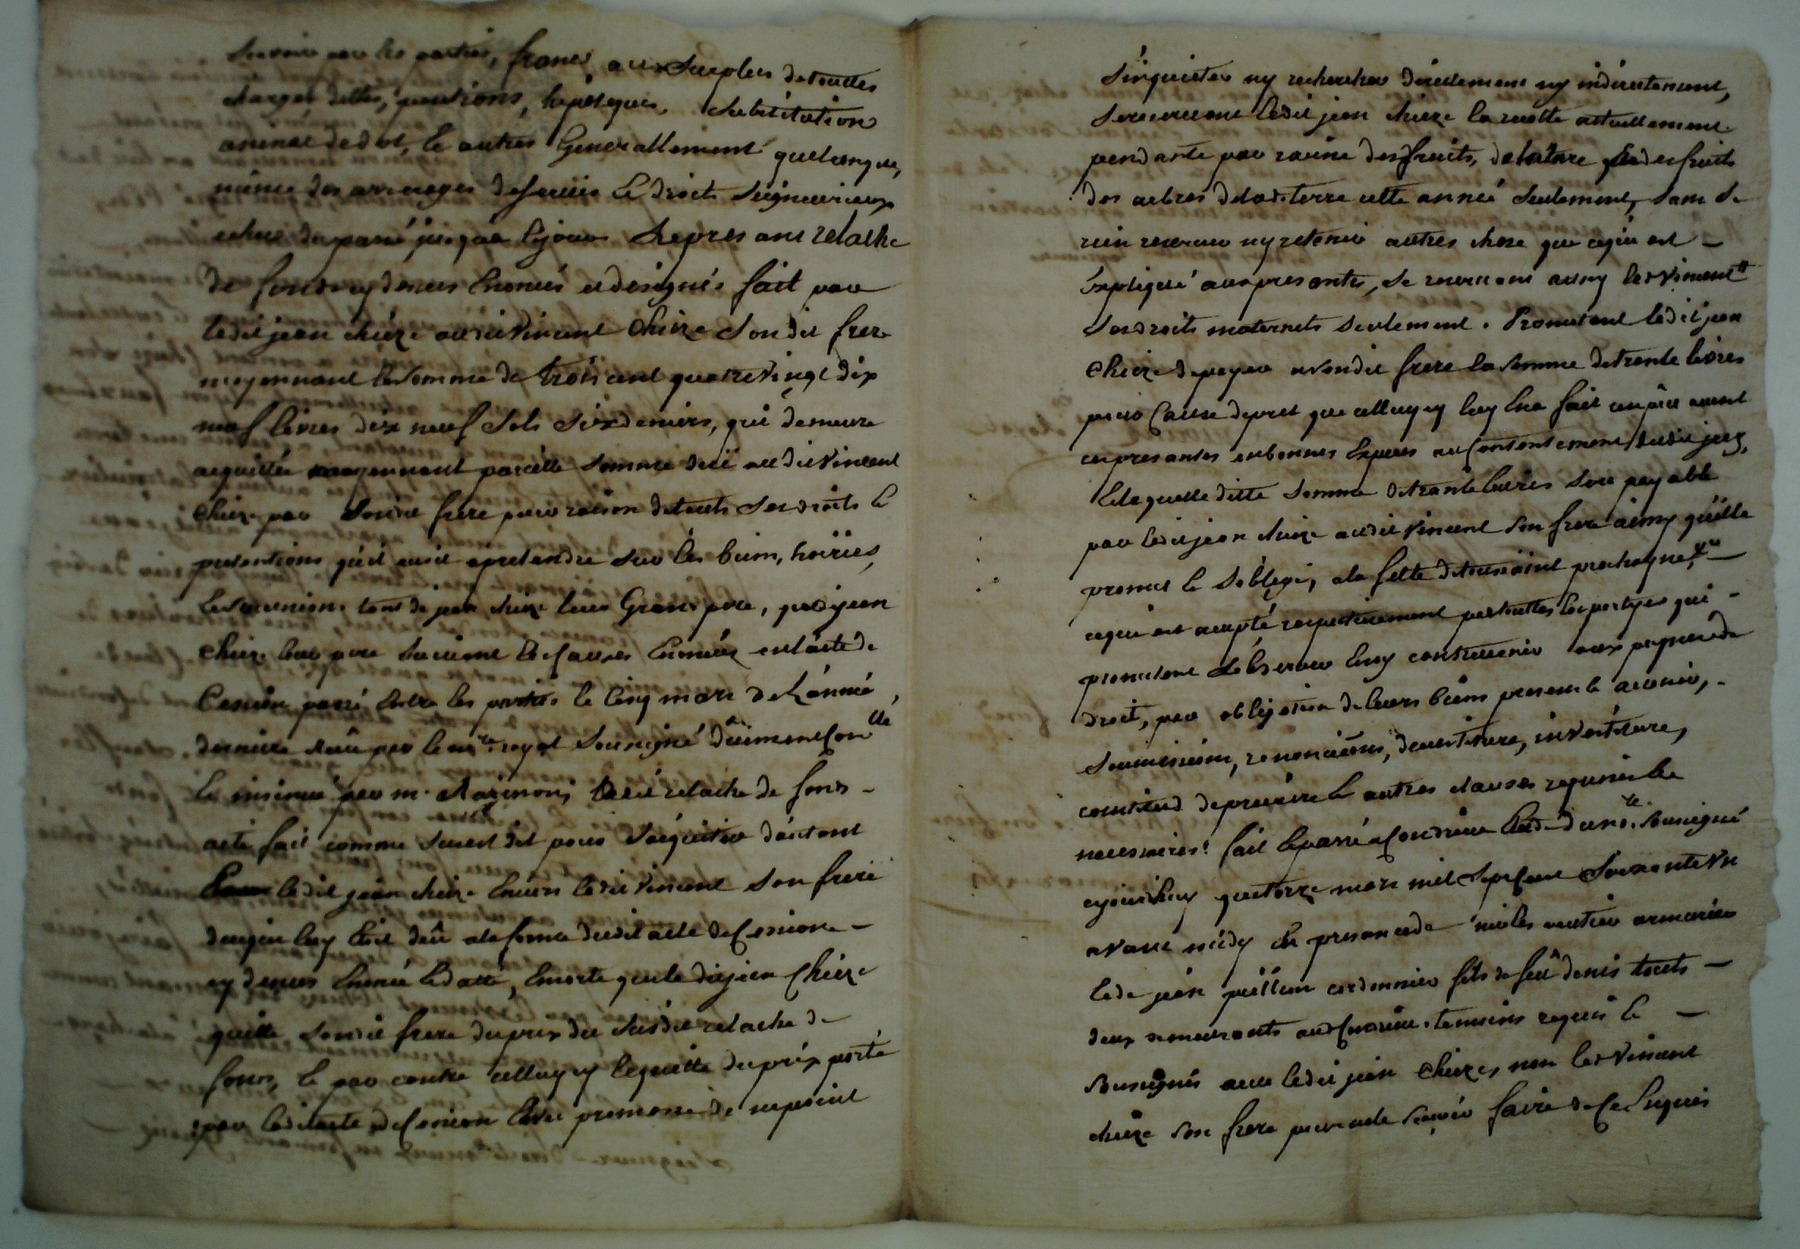 par les parties, francs au surplus de touttes
charges dettes, pentions, hipoteques substitution
de dot, et autres Generallement quelconque,
même des arrerages de servis et droits seigneuriaux
echus du passé jusqua ce jour le presant relache
de fonds cy dessus enoncés et designés fait par
ledit jean chieze audit vincent chieze son dit frere
moyennant la somme de trois cent quatre vingt dix
neuf livres dix neuf sols six deniers, qui demeure
acquittée moyennant pareille somme deüe audit vincent
chieze par sondit frere pour raison de touts ses droits et
pretentions qu'il avoit a pretendre sur les biens, hoiries,
et successions tant de chieze leur Grand pere, que de jean
chieze leur pere suivant et causes enoncées en l'acte de
Cession passé entre les parties le cinq mars de l'année
derniere reçu par le no.re royal soussigné düement con.llé
et insinué par m. ledit relache de fonds
acte fait comme sus est dit pour s'acquitter d'autant
ledit jean chieze envers ledit vincent son frere
de ce qui luy etoit dû a la forme dudit acte de Cession
cy dessus enoncé et datté, en sorte que le dit jean Chieze
quitte sondit frere du prix du susdit relache de
fonds, et par contre celluy cy le quitte du prix porté
par ledit acte de Cession avec promesse de ne point
s'inquieter ny rechercher directement ny indirectement,
se reservant ledit jean chieze la recolte actuellement
pendante par racine des fruits, de la terre des fruits
des arbres de lad. terre cette année seulement, sans se
rien reserver ny retenir autres chose que ce qui est
expliqué aux presantes, se reservant aussy led. vincent
ses droits maternels seulement. Promettant ledit jean
Chieze de payer a sondit frere la somme de trente livres
pour Cause de pret que celluy cy luy en a fait avant
ces presantes en bonnes especes au contentement dudit jean,
Et laquelle ditte somme de trante livres sera payable
par ledit jean chieze audit vincent son frere ainsy qu'il le
promet et s'oblige, a la fette de toussaint prochaine,
ce qui est accepté respectivement par touttes les parties qui
promettent l'observer et n'y contrevenir aux peines de
droit, par obligation de leurs biens presents et avenir,
soumissions, renonciations, devestiture, investiture,
constitut de precaire et autres clauses requises et
necessaires. fait et passé a Condrieu Etude du no.re soussigné
cejourdhuy quatorze mars mil sept cent soixante un
avant midy en presance de armurier
et de jean cordonnier fils de feû denis touts
deux demeurants aud. Condrieu temoins requis et
soussignés avec ledit jean chieze, non led. vincent
chieze son frere pour ne le sçavoir faire de Ce Enquis